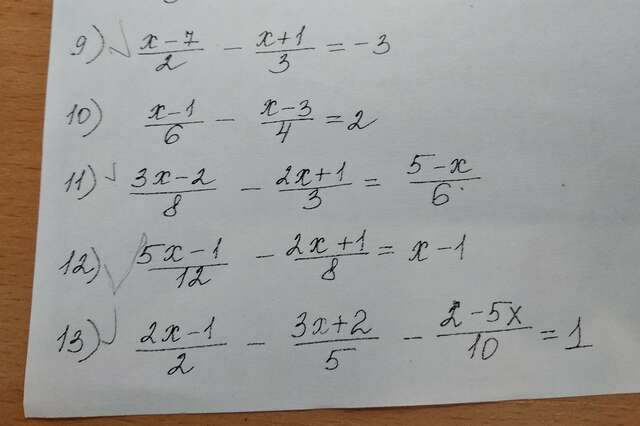 9) √ (x-7)/2 - (x+1)/3 = -3
10) (x-1)/6 - (x-3)/4 = 2
11) √ (3x-2)/8 - (2x+1)/3 = (5-x)/6
12) √ (5x-1)/12 - (2x+1)/8 = x-1
13) √ (2x-1)/2 - (3x+2)/5 - (2-5x)/10 = 1